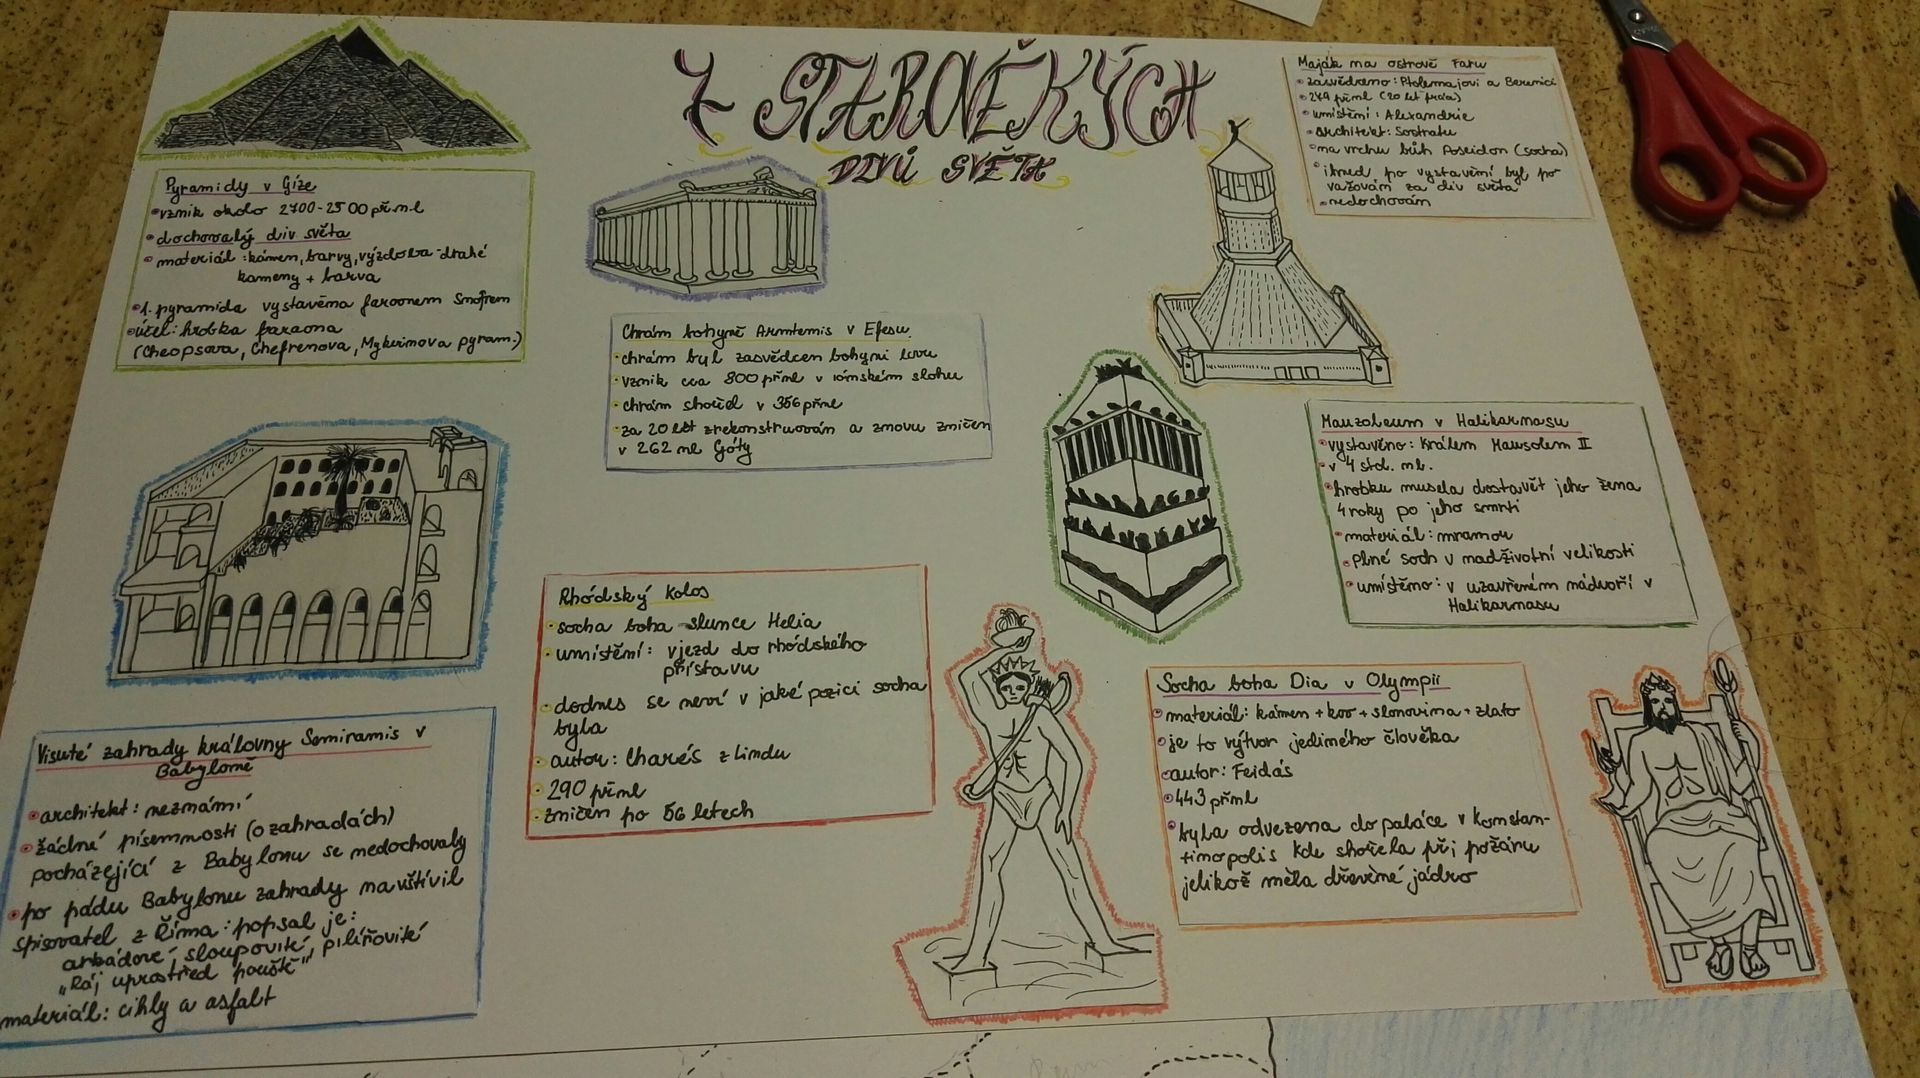 7 STAROVĚKÝCH
DIVŮ SVĚTA
Pyramidy v Gíze
vznik okolo 2700-2500 přnl
dochovalý div světa
materiál: kámen, barvy, výzdoba - drahé
kameny + barva
1. pyramida vystavěna faraonem Snofrem
účel: hrobka faraona
(Cheopsova, Chefrenova, Mykerinova pyram.)
Chrám bohyně Armtemis v Efesu
chrám byl zasvědcen bohyni lovu
vznik cca 800 přnl v iónském slohu
chrám shořel v 356 přnl
za 20 let zrekonstruován a znovu zničen
v 262 nl Góty
Maják na ostrově Faru
zasvědceno: Ptolemajovi a Berenicí
279 přnl (20 let práce)
umístění: Alexandrie
architekt: Sostratu
na vrchu bůh Poseidon (socha)
ihned po vystavění byl po
važován za div světa
nedochován
Mauzoleum v Halikarnasu
vystavěno: Králem Mausolem II
v 4 stol. nl.
hrobku musela dostavět jeho žena
4 roky po jeho smrti
materiál: mramor
plné soch v nadživotní velikosti
umístěno: v uzavřeném nádvoří v
Halikarnasu
Visuté zahrady královny Semiramis v
Babyloně
architekt: neznámí
žádné písemnosti (o zahradách)
pocházející z Babylonu se nedochovaly
po pádu Babylonu zahrady navštívil
spisovatel z Říma: popsal je:
arkádové, sloupovité, pilířovité
„Ráj uprostřed pouště"
materiál: cihly a asfalt
Rhódský kolos
socha boha slunce Helia
umístění: vjezd do rhódského
přístavu
dodnes se neví v jaké pozici socha
byla
autor: Charés z Lindu
290 přnl
zničen po 56 letech
Socha boha Dia v Olympii
materiál: kámen + kov + slonovina + zlato
je to výtvor jediného člověka
autor: Feidás
443 přnl
byla odvezena do paláce v Konstan-
tinopolis kde shořela při požáru
jelikož měla dřevěné jádro